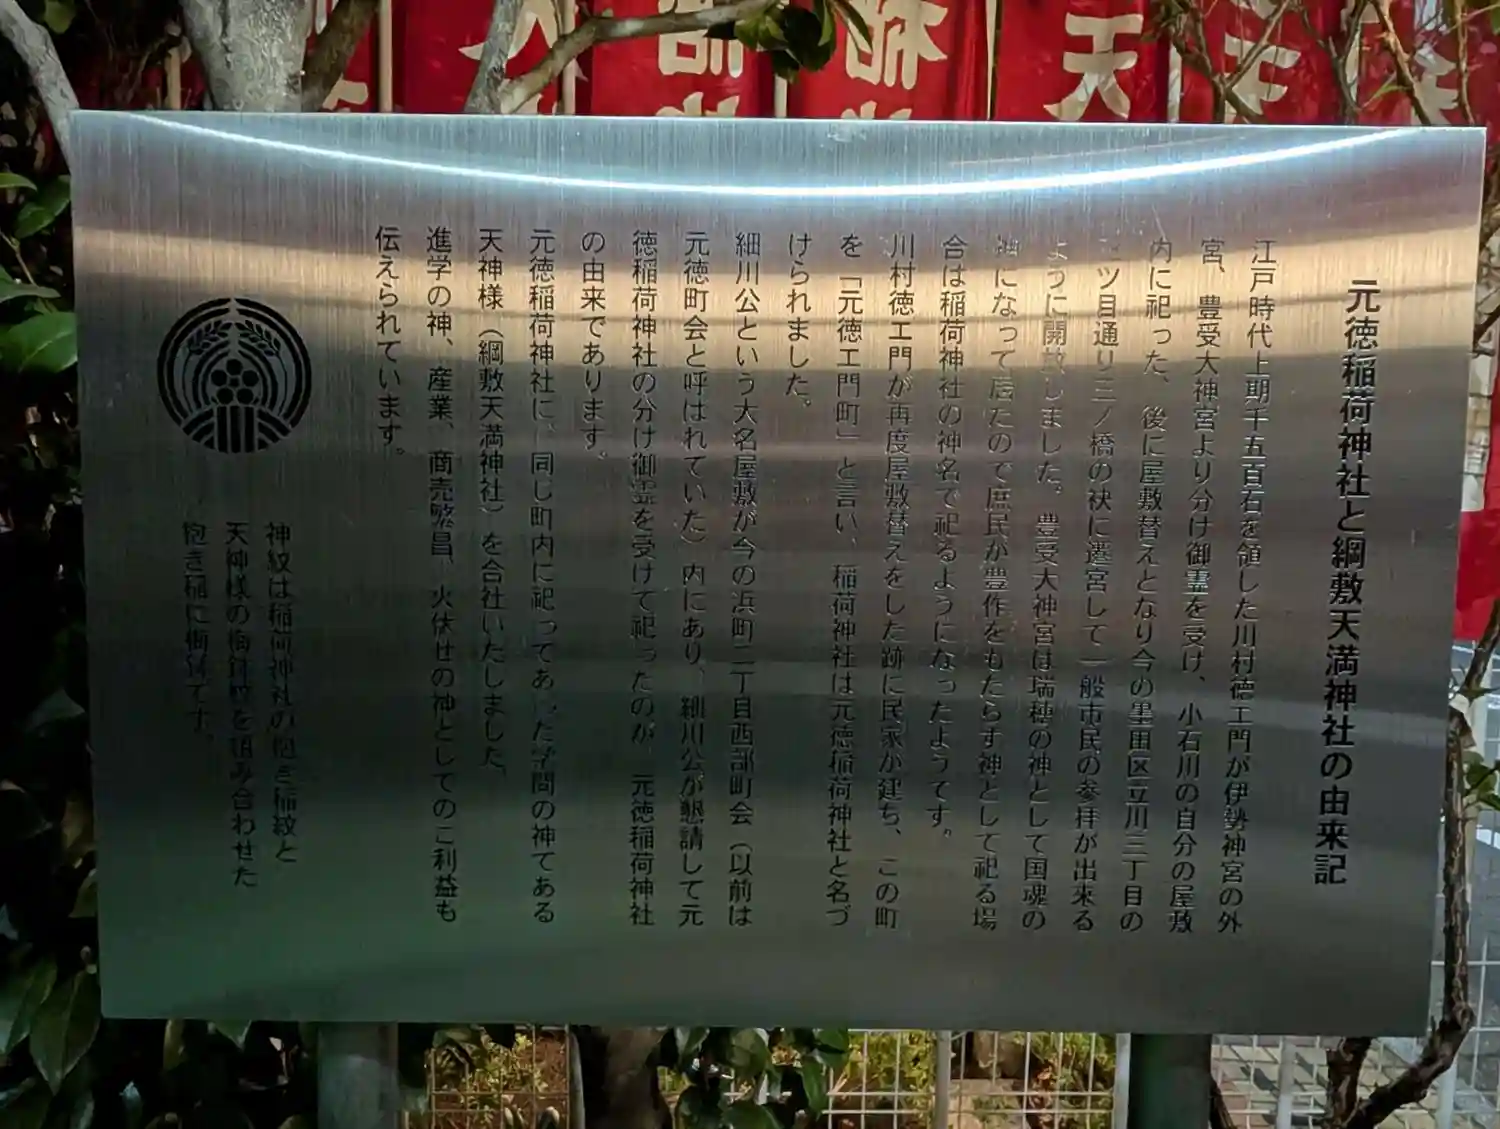 元徳稲荷神社と綱敷天満神社の由来記
江戸時代上期千五百石を領した川村徳エ門が伊勢神宮の外
宮、豊受大神宮より分け御霊を受け、小石川の自分の屋敷
内に祀った、後に屋敷替えとなり今の墨田区立川三丁目の
ツ目通り三ノ橋の袂に遷宮して一般市民の参拝が出来る
ように開放しました。豊受大神宮は瑞穂の神として国魂の
神になって居たので庶民が豊作をもたらす神として祀る場
合は稲荷神社の神名で祀るようになったようです。
川村徳エ門が再度屋敷替えをした跡に民家が建ち、この町
を「元徳エ門町」と言い、稲荷神社は元徳稲荷神社と名づ
けられました。
細川公という大名屋敷が今の浜町二丁目西部町会（以前は
元徳町会と呼ばれていた）内にあり、細川公が懇請して元
徳稲荷神社の分け御霊を受けて祀ったのが、元徳稲荷神社
の由来であります。
元徳稲荷神社に、同じ町内に祀ってあった学問の神である
天神様（綱敷天満神社）を合社いたしました。
進学の神、産業、商売繁昌、火伏せの神としてのご利益も
伝えられています。
神紋は稲荷神社の抱き稲紋と
天神様の梅鉢紋を組み合わせた
抱き稲に梅鉢です。
天
稲
稲
天